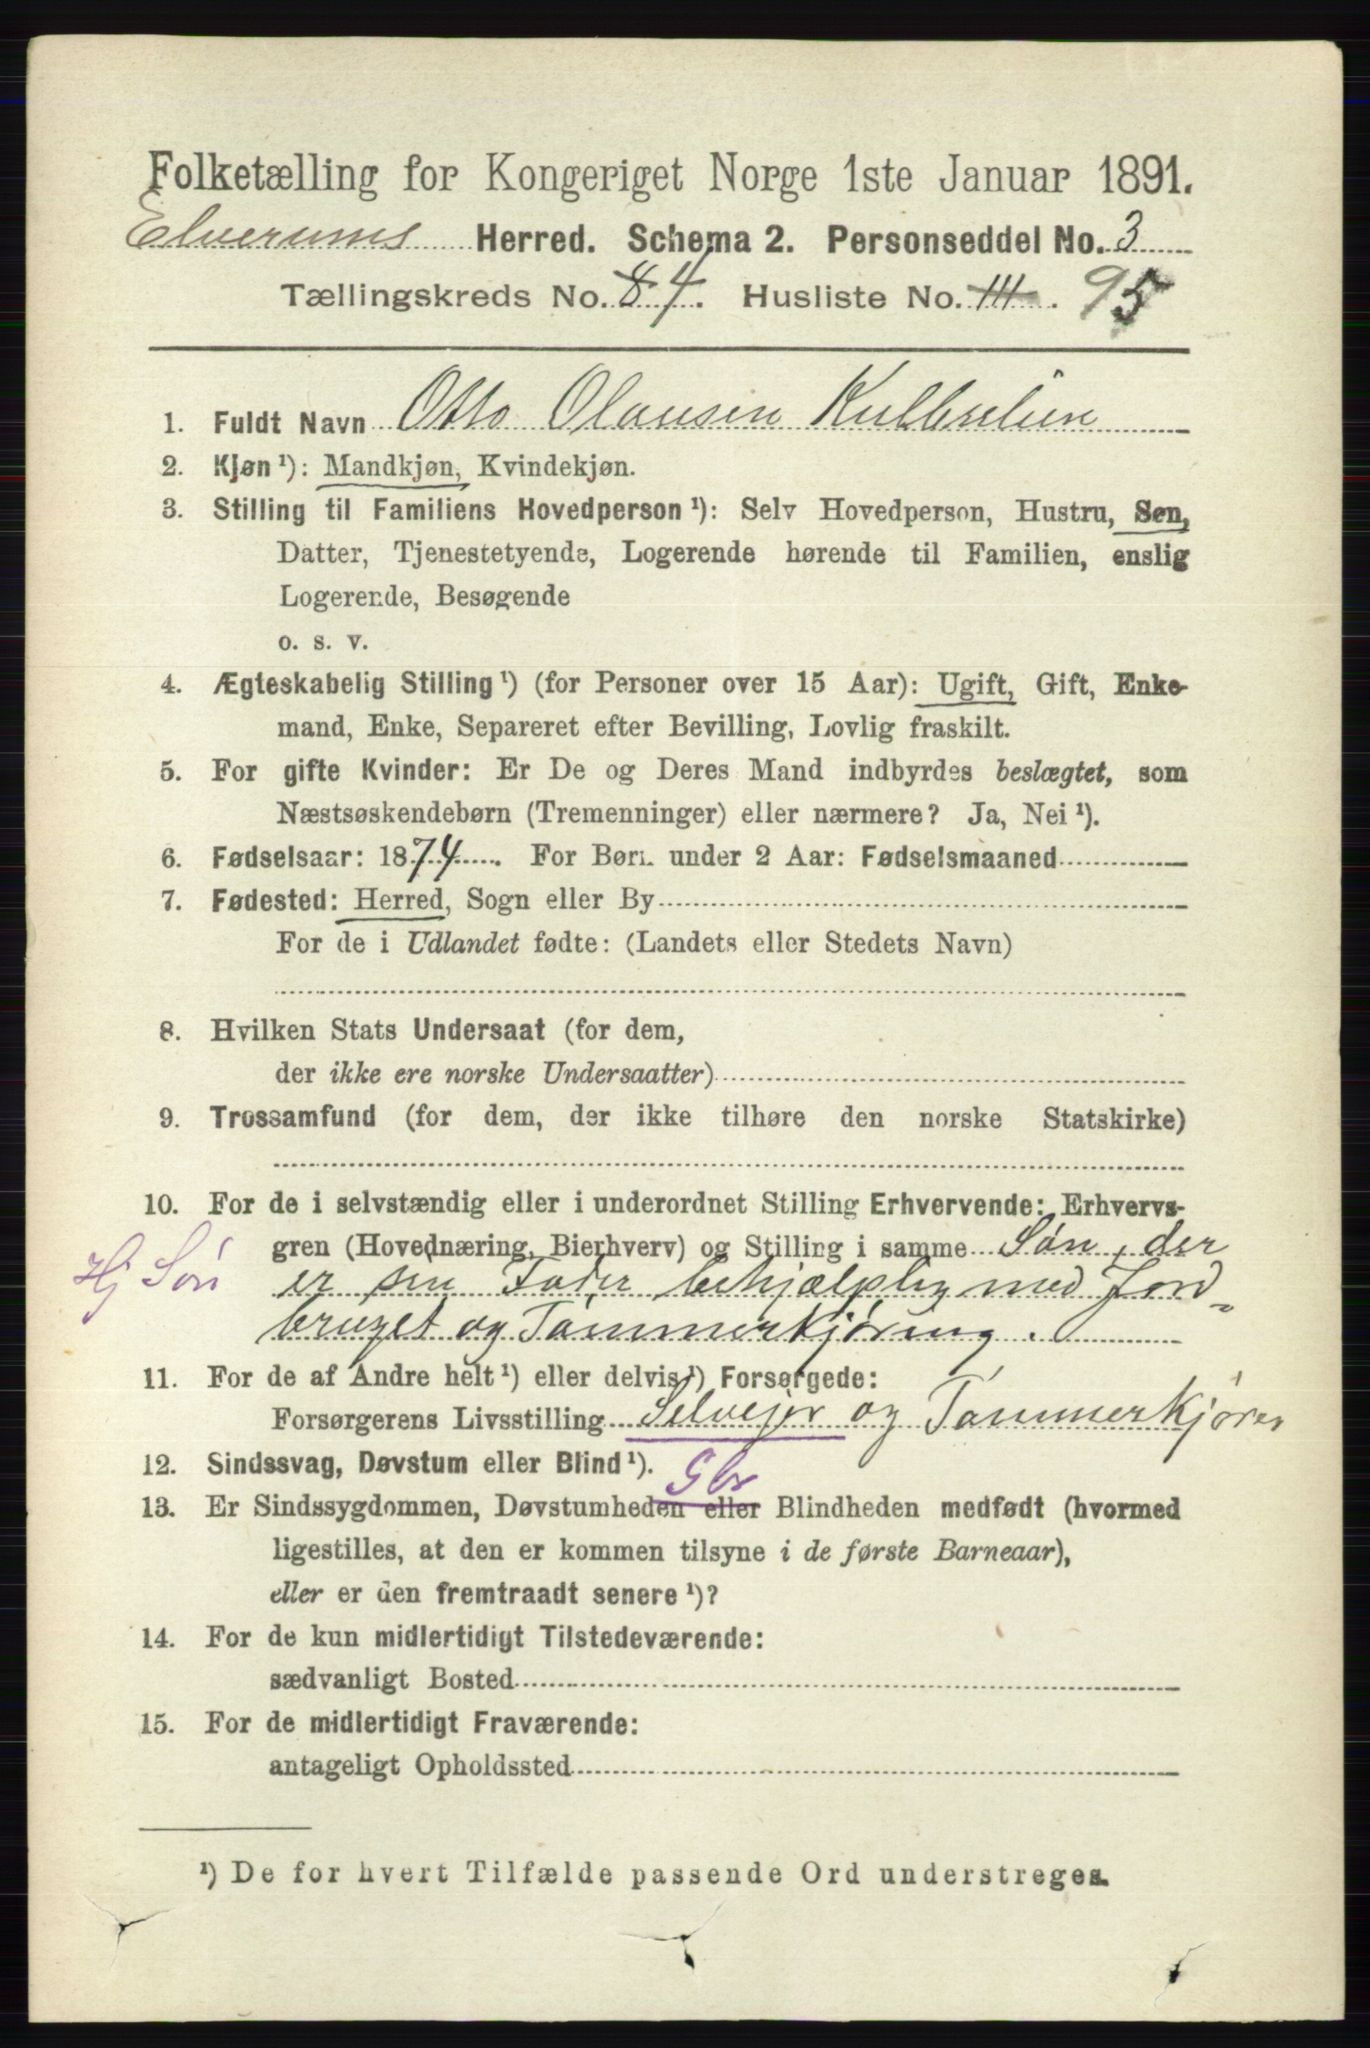 Folketælling for Kongeriget Norge 1ste Januar 1891.
Elverums Herred. Schema 2. Personseddel No. 3
Tællingskreds No. 8 4. Husliste No. 111. 95
1. Fuldt Navn Otto Olausen
2. Kjøn ¹): Mandkjøn, Kvindekjøn.
3. Stilling til Familiens Hovedperson ¹): Selv Hovedperson, Hustru, Søn,
Datter, Tjenestetyende, Logerende hørende til Familien, enslig
Logerende, Besøgende
o. s. v.
4. Ægteskabelig Stilling ¹) (for Personer over 15 Aar): Ugift, Gift, Enke-
mand, Enke, Separeret efter Bevilling, Lovlig fraskilt.
5. For gifte Kvinder: Er De og Deres Mand indbyrdes beslægtet, som
Næstsøskendebørn (Tremenninger) eller nærmere? Ja, Nei ¹).
6. Fødselsaar: 1874. For Børn under 2 Aar: Fødselsmaaned
7. Fødested: Herred, Sogn eller By
For de i Udlandet fødte: (Landets eller Stedets Navn)
8. Hvilken Stats Undersaat (for dem,
der ikke ere norske Undersaatter)
9. Trossamfund (for dem, der ikke tilhøre den norske Statskirke)
10. For de i selvstændig eller i underordnet Stilling Erhvervende: Erhvervs-
gren (Hovednæring, Bierhverv) og Stilling i samme Søn, der
Hj Søn er sin Fader behjælplig med Jord-
bruget og Tømmerkjøring.
11. For de af Andre helt ¹) eller delvis ¹) Forsørgede:
Forsørgerens Livsstilling Selveier og Tømmerkjører
12. Sindssvag, Døvstum eller Blind ¹). Gbr
13. Er Sindssygdommen, Døvstumheden eller Blindheden medfødt (hvormed
ligestilles, at den er kommen tilsyne i de første Barneaar),
eller er den fremtraadt senere ¹)?
14. For de kun midlertidigt Tilstedeværende:
sædvanligt Bosted
15. For de midlertidigt Fraværende:
antageligt Opholdssted
¹) De for hvert Tilfælde passende Ord understreges.